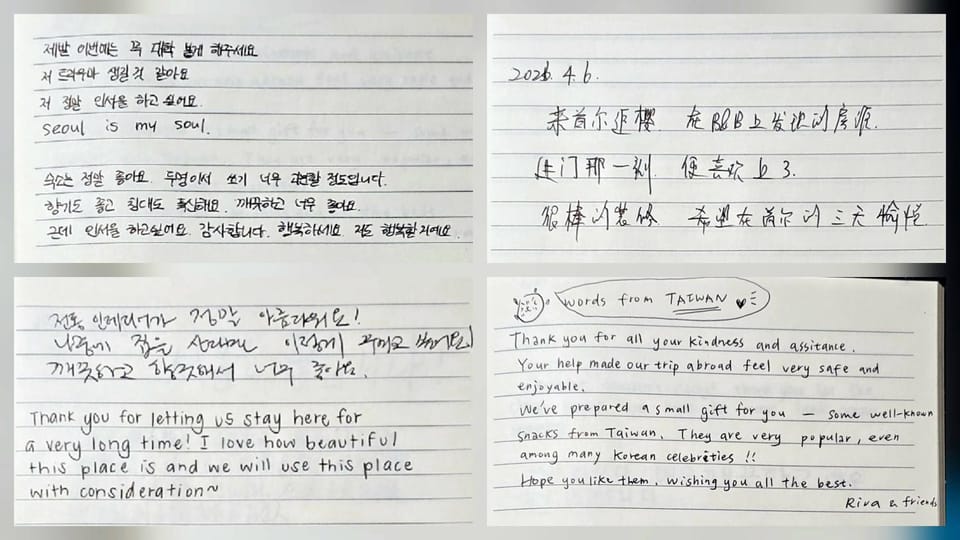 제발 이번에는 꼭 대학 붙게 해주세요
저 트라우마 생길것 같아요
저 정말 인서울 하고 싶어요.
seoul is my soul.
숙소는 정말 좋아요. 두명이서 쓰기 너무 과분할 정도입니다.
향기도 좋고 침대도 푹신해요. 깨끗하고 너무 좋아요.
근데 인서울 하고싶어요. 감사합니다. 행복하세요. 저도 행복할거에요.
4.6.
来首尔追樱. 在B&B上发现的房源.
进门那一刻. 便喜欢上了.
很棒的装修 希望在首尔的三天愉悦.
전통 인테리어가 정말 아름다워요!
나중에 집을 산다면 이렇게 꾸미고 싶어요!
깨끗하고 너무 좋아요.
Thank you for letting us stay here for
a very long time! I love how beautiful
this place is and we will use this place
with consideration~
words from TAIWAN
Thank you for all your kindness and assitance.
Your help made our trip abroad feel very safe and
enjoyable.
We've prepared a small gift for you — some well-known
snacks from Taiwan. They are very popular, even
among many Korean celebreties !!
Hope you like them. Wishing you all the best.
Riva & friends